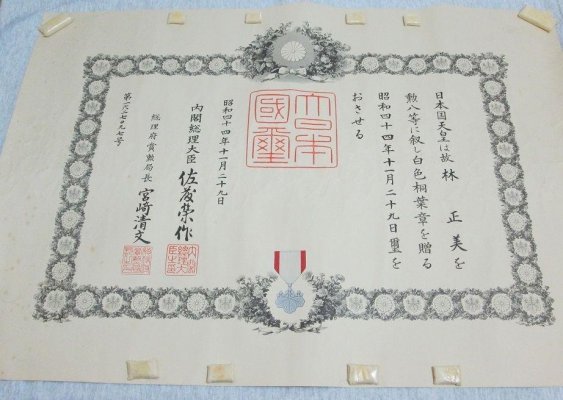 日本国天皇は故林 正美を
勲八等に叙し白色桐葉章を贈る
昭和四十四年十一月二十九日璽を
おさせる
大日本國璽
昭和四十四年十一月二十九日
内閣総理大臣 佐藤榮作
総理府賞勲局長 宮崎清文